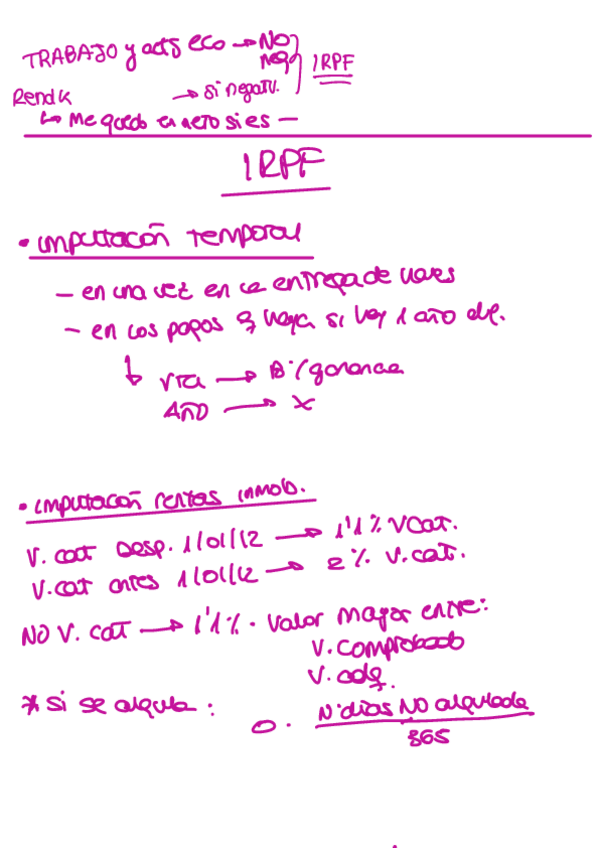 TRABAJO y acts eco → NO
neg } IRPF
Rend K → si negativ.
↳ Me quedo en cero si es —
IRPF
• imputación temporal
— en una vez en la entrega de llaves
— en los pagos q haya si hay 1 año dif.
↳ vta → B°/ganancia
AÑO → X
• imputación rentas inmob.
V. cat Desp. 1/01/12 → 1'1% Vcat.
V. cat antes 1/01/12 → 2% V. cat.
NO V. cat → 1'1% · Valor mayor entre:
V. comprobado
V. adq.
* si se alquila :
O · Nº días NO alquilada
365